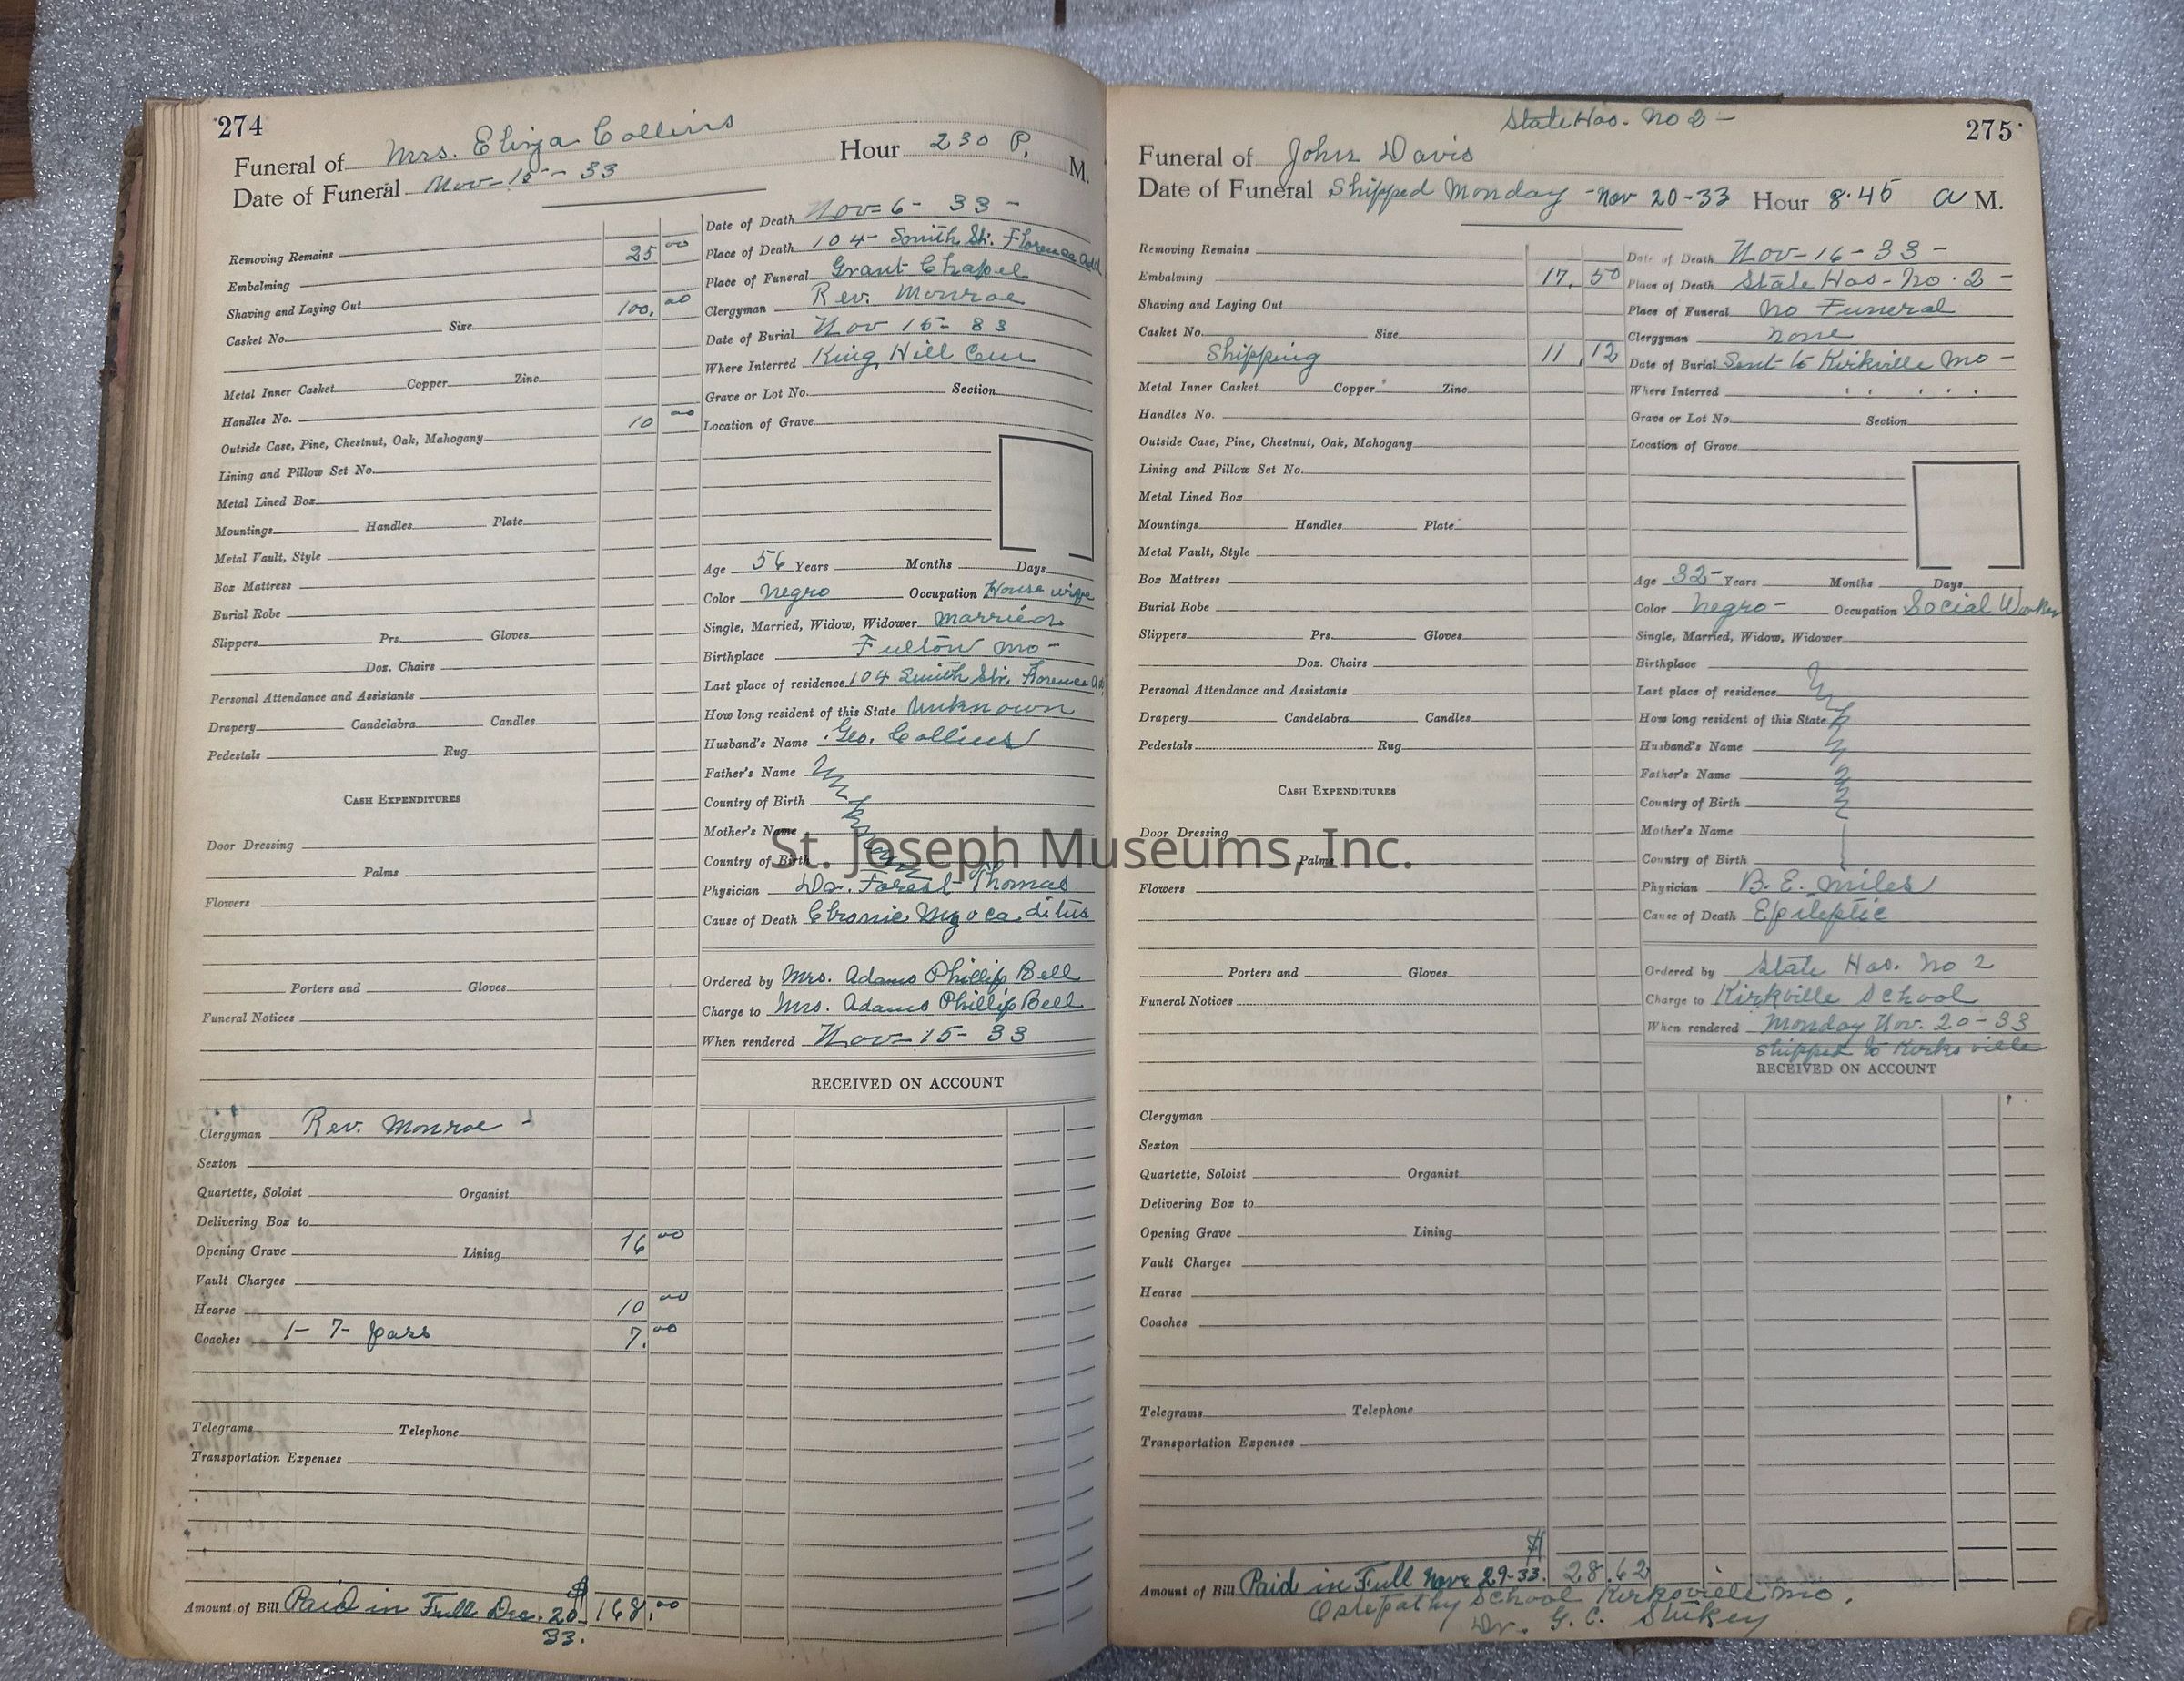 274
Funeral of Mrs. Eliza Collins Hour 2 30 P. M.
Date of Funeral Nov-15-33
Removing Remains 25 00
Embalming
Shaving and Laying Out 100. 00
Casket No. Size
Metal Inner Casket Copper Zinc
Handles No.
Outside Case, Pine, Chestnut, Oak, Mahogany 10 00
Lining and Pillow Set No.
Metal Lined Box
Mountings Handles Plate
Metal Vault, Style
Box Mattress
Burial Robe
Slippers Prs. Gloves
Doz. Chairs
Personal Attendance and Assistants
Drapery Candelabra Candles
Pedestals Rug
CASH EXPENDITURES
Door Dressing
Palms
Flowers
Porters and Gloves
Funeral Notices
Clergyman Rev. Monroe
Sexton
Quartette, Soloist Organist
Delivering Box to
Opening Grave Lining 16 00
Vault Charges
Hearse 10 00
Coaches 1- 7- pass 7. 00
Telegrams Telephone
Transportation Expenses
Amount of Bill Paid in Full Dec. 20- $ 168.00
33.
Date of Death Nov-6- 33-
Place of Death 104- Smith St. Florence Add
Place of Funeral Grant Chapel
Clergyman Rev. Monroe
Date of Burial Nov 15- 33
Where Interred King Hill Cem
Grave or Lot No. Section
Location of Grave
Age 56 Years Months Days
Color Negro Occupation House wife
Single, Married, Widow, Widower married
Birthplace Fulton Mo-
Last place of residence 104 Smith Str. Florence Ad
How long resident of this State Unknown
Husband's Name Geo. Collins
Father's Name Unknown
Country of Birth
Mother's Name
Country of Birth
Physician Dr. Forest Thomas
Cause of Death Chronic Myocaditus
Ordered by Mrs. Adams Phillip Bell
Charge to Mrs. Adams Phillip Bell
When rendered Nov-15-33
RECEIVED ON ACCOUNT
St. Joseph Museums, Inc.
State Hos. No 2-
275
Funeral of John Davis
Date of Funeral Shipped Monday - Nov 20-33 Hour 8.45 a M.
Removing Remains
Embalming 17. 50
Shaving and Laying Out
Casket No. Size
Shipping 11.12
Metal Inner Casket Copper Zinc
Handles No.
Outside Case, Pine, Chestnut, Oak, Mahogany
Lining and Pillow Set No.
Metal Lined Box
Mountings Handles Plate
Metal Vault, Style
Box Mattress
Burial Robe
Slippers Prs. Gloves
Doz. Chairs
Personal Attendance and Assistants
Drapery Candelabra Candles
Pedestals Rug
CASH EXPENDITURES
Door Dressing
Palms
Flowers
Porters and Gloves
Funeral Notices
Clergyman
Sexton
Quartette, Soloist Organist
Delivering Box to
Opening Grave Lining
Vault Charges
Hearse
Coaches
Telegrams Telephone
Transportation Expenses
Amount of Bill Paid in Full Nov. 29-33. $ 28.62
Ostepathy School Kirksville Mo.
Dr. G. C.
Date of Death Nov-16-33-
Place of Death State Hos-No. 2-
Place of Funeral No Funeral
Clergyman none
Date of Burial Sent to Kirkville Mo-
Where Interred
Grave or Lot No. Section
Location of Grave
Age 32- Years Months Days
Color Negro- Occupation Social Worker
Single, Married, Widow, Widower
Birthplace
Last place of residence
How long resident of this State
Husband's Name
Father's Name
Country of Birth
Mother's Name
Country of Birth
Physician B. E. Miles
Cause of Death Epileptic
Ordered by State Hos. No 2
Charge to Kirkville School
When rendered Monday Nov. 20-33
shipped to Kirksville
RECEIVED ON ACCOUNT